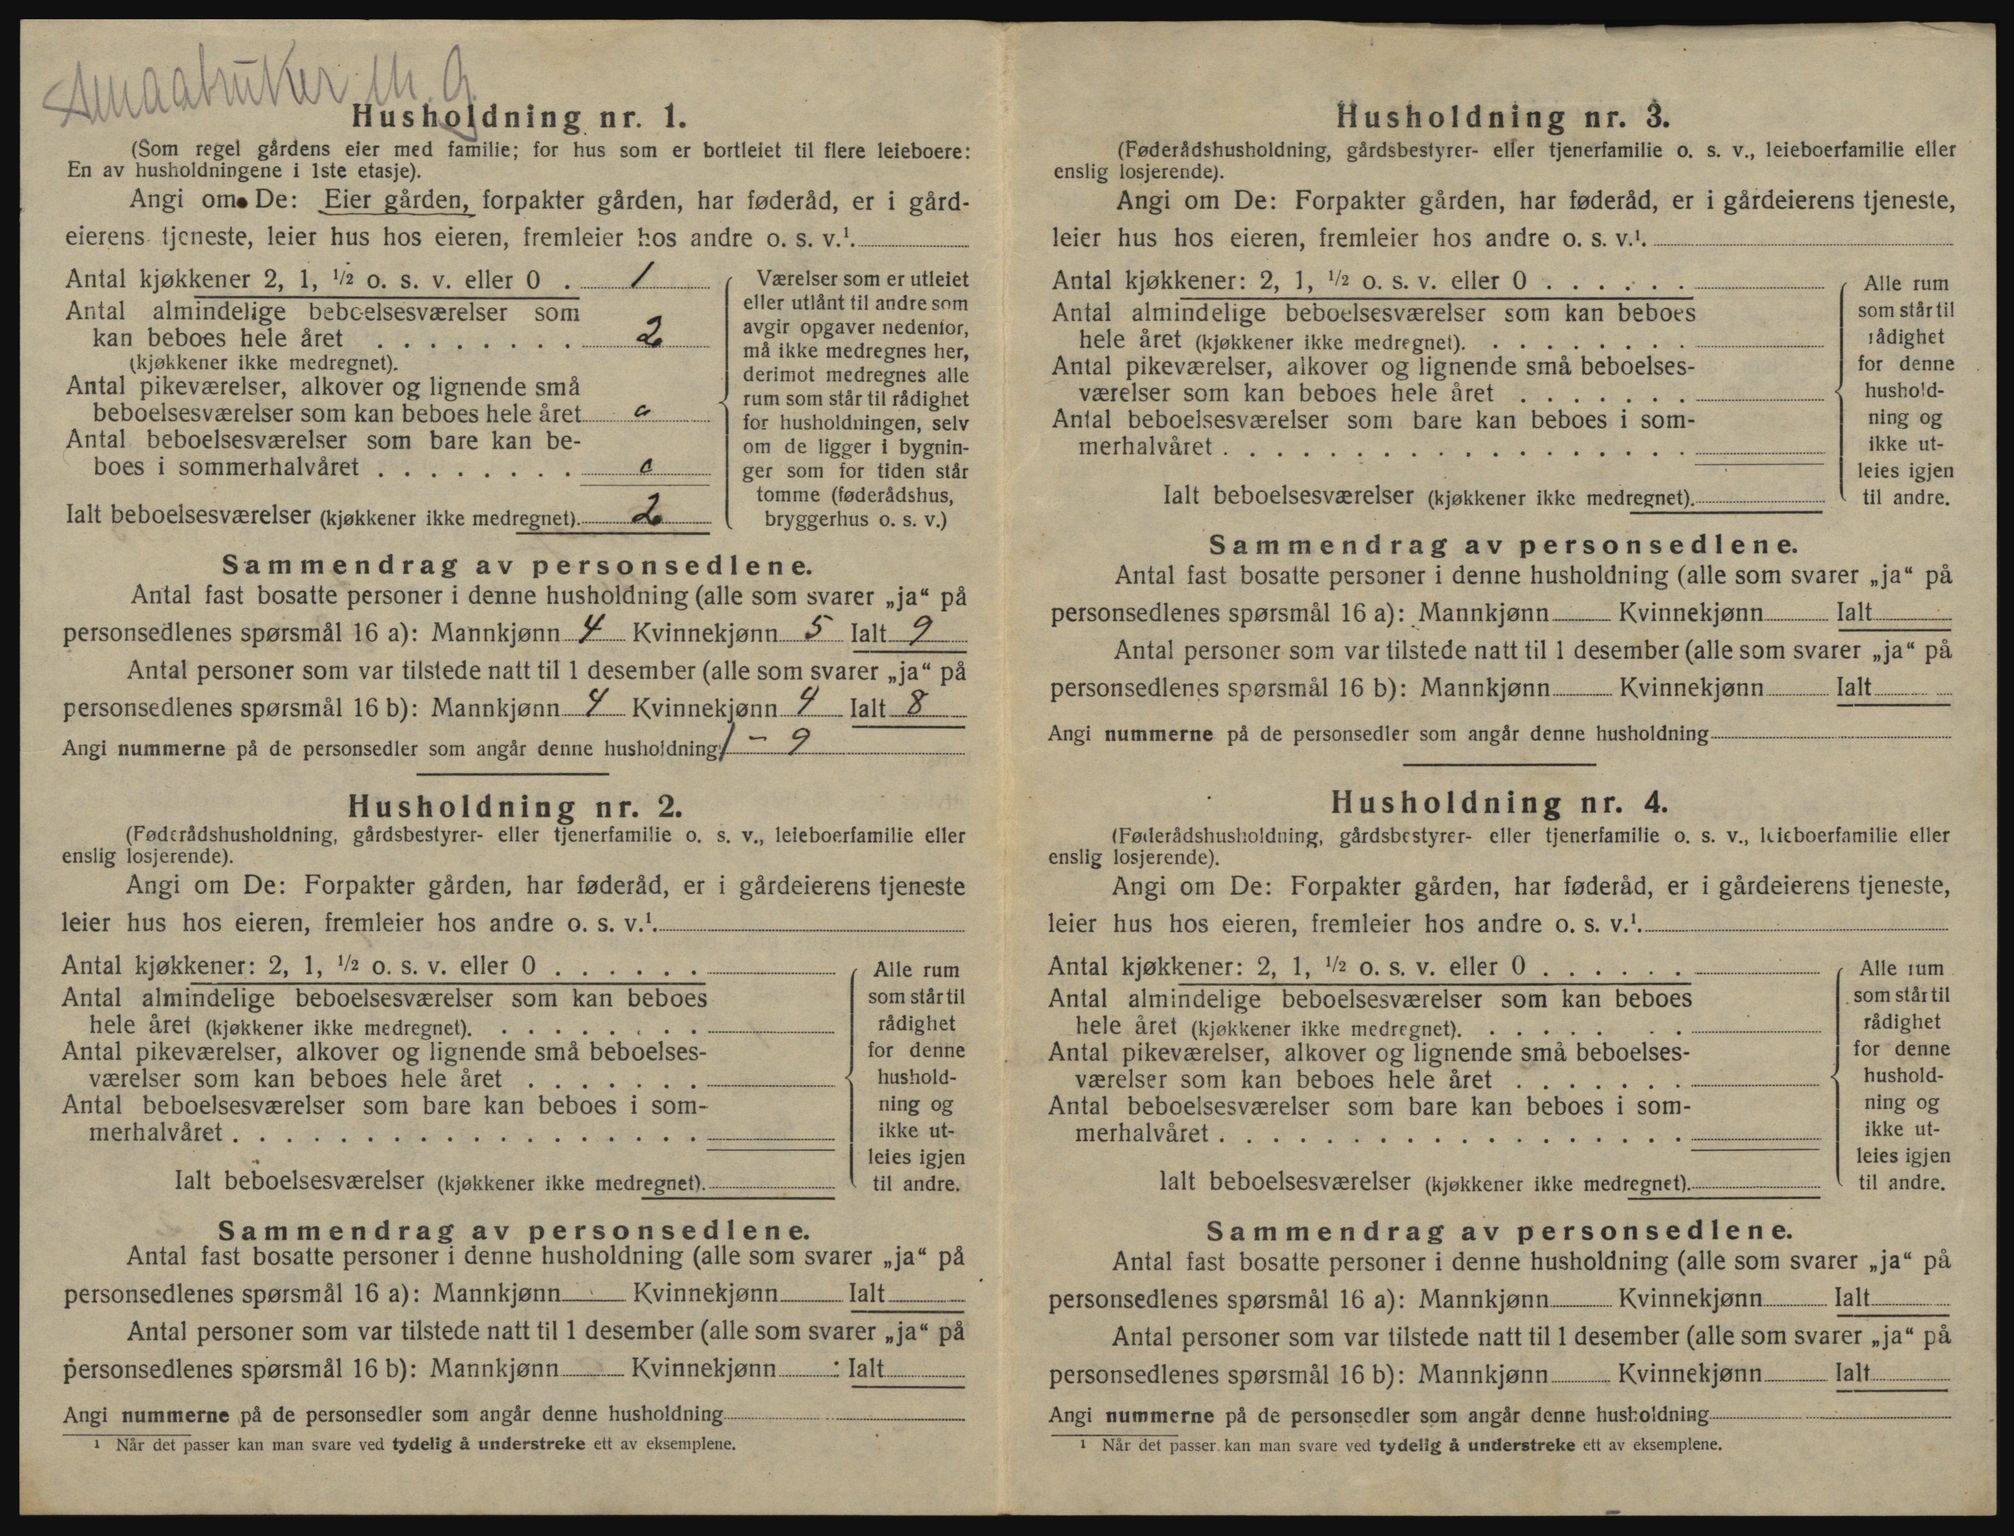 Smaabruker M. G.
Husholdning nr. 1.
(Som regel gårdens eier med familie; for hus som er bortleiet til flere leieboere:
En av husholdningene i 1ste etasje).
Angi om De: Eier gården, forpakter gården, har føderåd, er i gård-
eierens tjeneste, leier hus hos eieren, fremleier hos andre o. s. v.¹.
Antal kjøkkener 2, 1, 1/2 o. s. v. eller 0 . 1
Antal almindelige beboelsesværelser som
kan beboes hele året . . . . . . . . 2
(kjøkkener ikke medregnet).
Antal pikeværelser, alkover og lignende små
beboelsesværelser som kan beboes hele året 0
Antal beboelsesværelser som bare kan be-
boes i sommerhalvåret . . . . . . . . 0
Ialt beboelsesværelser (kjøkkener ikke medregnet). 2
Værelser som er utleiet
eller utlånt til andre som
avgir opgaver nedenfor,
må ikke medregnes her,
derimot medregnes alle
rum som står til rådighet
for husholdningen, selv
om de ligger i bygnin-
ger som for tiden står
tomme (føderådshus,
bryggerhus o. s. v.)
Sammendrag av personsedlene.
Antal fast bosatte personer i denne husholdning (alle som svarer „ja“ på
personsedlenes spørsmål 16 a): Mannkjønn 4 Kvinnekjønn 5 Ialt 9
Antal personer som var tilstede natt til 1 desember (alle som svarer „ja“ på
personsedlenes spørsmål 16 b): Mannkjønn 4 Kvinnekjønn 4 Ialt 8
Angi nummerne på de personsedler som angår denne husholdning 1 - 9
Husholdning nr. 2.
(Føderådshusholdning, gårdsbestyrer- eller tjenerfamilie o. s. v., leieboerfamilie eller
enslig losjerende).
Angi om De: Forpakter gården, har føderåd, er i gårdeierens tjeneste
leier hus hos eieren, fremleier hos andre o. s. v.¹.
Antal kjøkkener: 2, 1, 1/2 o. s. v. eller 0 . . . . . .
Antal almindelige beboelsesværelser som kan beboes
hele året (kjøkkener ikke medregnet). . . . . . . . .
Antal pikeværelser, alkover og lignende små beboelses-
værelser som kan beboes hele året . . . . . . .
Antal beboelsesværelser som bare kan beboes i som-
merhalvåret . . . . . . . . . . . . . . . . . .
Ialt beboelsesværelser (kjøkkener ikke medregnet).
Alle rum
som står til
rådighet
for denne
hushold-
ning og
ikke ut-
leies igjen
til andre.
Sammendrag av personsedlene.
Antal fast bosatte personer i denne husholdning (alle som svarer „ja“ på
personsedlenes spørsmål 16 a): Mannkjønn Kvinnekjønn Ialt
Antal personer som var tilstede natt til 1 desember (alle som svarer „ja“ på
personsedlenes spørsmål 16 b): Mannkjønn Kvinnekjønn Ialt
Angi nummerne på de personsedler som angår denne husholdning
¹ Når det passer kan man svare ved tydelig å understreke ett av eksemplene.
Husholdning nr. 3.
(Føderådshusholdning, gårdsbestyrer- eller tjenerfamilie o. s. v., leieboerfamilie eller
enslig losjerende).
Angi om De: Forpakter gården, har føderåd, er i gårdeierens tjeneste,
leier hus hos eieren, fremleier hos andre o. s. v.¹.
Antal kjøkkener: 2, 1, 1/2 o. s. v. eller 0 . . . . . .
Antal almindelige beboelsesværelser som kan beboes
hele året (kjøkkener ikke medregnet). . . . . . . . .
Antal pikeværelser, alkover og lignende små beboelses-
værelser som kan beboes hele året . . . . . . .
Antal beboelsesværelser som bare kan beboes i som-
merhalvåret . . . . . . . . . . . . . . . . . .
Ialt beboelsesværelser (kjøkkener ikke medregnet).
Alle rum
som står til
rådighet
for denne
hushold-
ning og
ikke ut-
leies igjen
til andre.
Sammendrag av personsedlene.
Antal fast bosatte personer i denne husholdning (alle som svarer „ja“ på
personsedlenes spørsmål 16 a): Mannkjønn Kvinnekjønn Ialt
Antal personer som var tilstede natt til 1 desember (alle som svarer „ja“ på
personsedlenes spørsmål 16 b): Mannkjønn Kvinnekjønn Ialt
Angi nummerne på de personsedler som angår denne husholdning
Husholdning nr. 4.
(Føderådshusholdning, gårdsbestyrer- eller tjenerfamilie o. s. v., leieboerfamilie eller
enslig losjerende).
Angi om De: Forpakter gården, har føderåd, er i gårdeierens tjeneste,
leier hus hos eieren, fremleier hos andre o. s. v.¹.
Antal kjøkkener: 2, 1, 1/2 o. s. v. eller 0 . . . . . .
Antal almindelige beboelsesværelser som kan beboes
hele året (kjøkkener ikke medregnet). . . . . . . .
Antal pikeværelser, alkover og lignende små beboelses-
værelser som kan beboes hele året . . . . . . .
Antal beboelsesværelser som bare kan beboes i som-
merhalvåret . . . . . . . . . . . . . . . . . .
Ialt beboelsesværelser (kjøkkener ikke medregnet).
Alle rum
som står til
rådighet
for denne
hushold-
ning og
ikke ut-
leies igjen
til andre.
Sammendrag av personsedlene.
Antal fast bosatte personer i denne husholdning (alle som svarer „ja“ på
personsedlenes spørsmål 16 a): Mannkjønn Kvinnekjønn Ialt
Antal personer som var tilstede natt til 1 desember (alle som svarer „ja“ på
personsedlenes spørsmål 16 b): Mannkjønn Kvinnekjønn Ialt
Angi nummerne på de personsedler som angår denne husholdning
¹ Når det passer kan man svare ved tydelig å understreke ett av eksemplene.